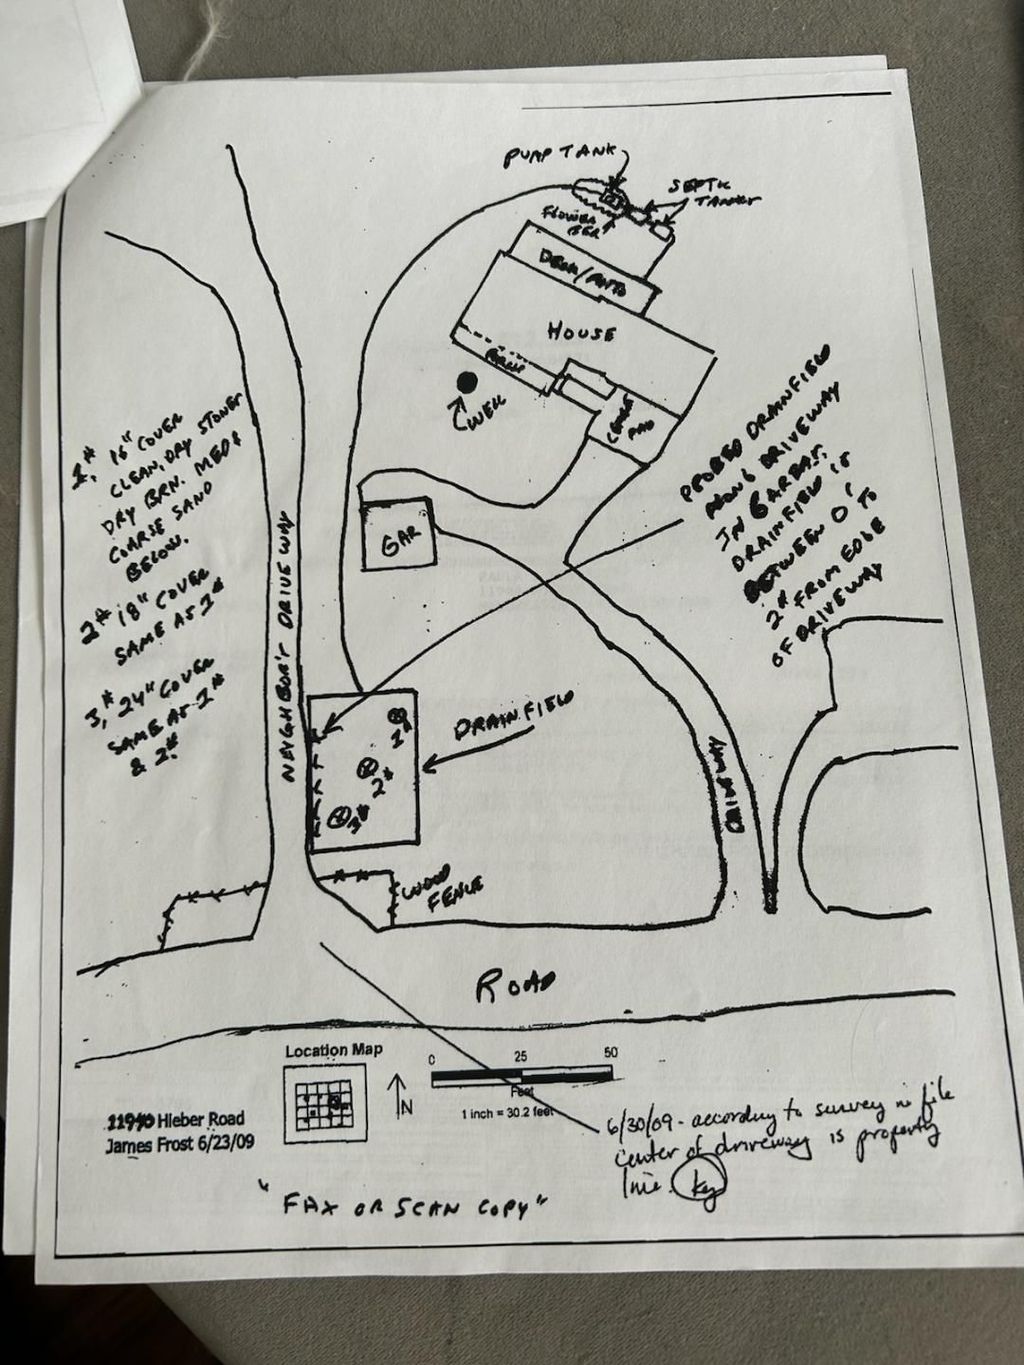 PUMP TANK
SEPTIC
TANKS
FLOWER
BED
DECK/PATIO
HOUSE
WELL
PAD
GAR
1#, 16" COVER
CLEAN, DRY STONES
DRY BRN. MED &
COARSE SAND
BELOW.
2# 18" COVER
SAME AS 1#
3# 24" COVER
SAME AS 1#
& 2#
PROBED DRAINFIELD
ALONG DRIVEWAY
IN 6 AREAS,
DRAINFIELD IS
BETWEEN 0' TO
FROM EDGE
OF DRIVEWAY
NEIGHBOR'S DRIVEWAY
1#
2#
3#
DRAINFIELD
DRIVEWAY
WOOD
FENCE
ROAD
Location Map
N
0 25 50
Feet
1 inch = 30.2 feet
Hieber Road
James Frost 6/23/09
6/30/09 - according to survey in file
center of driveway is property
line. kg
"FAX OR SCAN COPY"